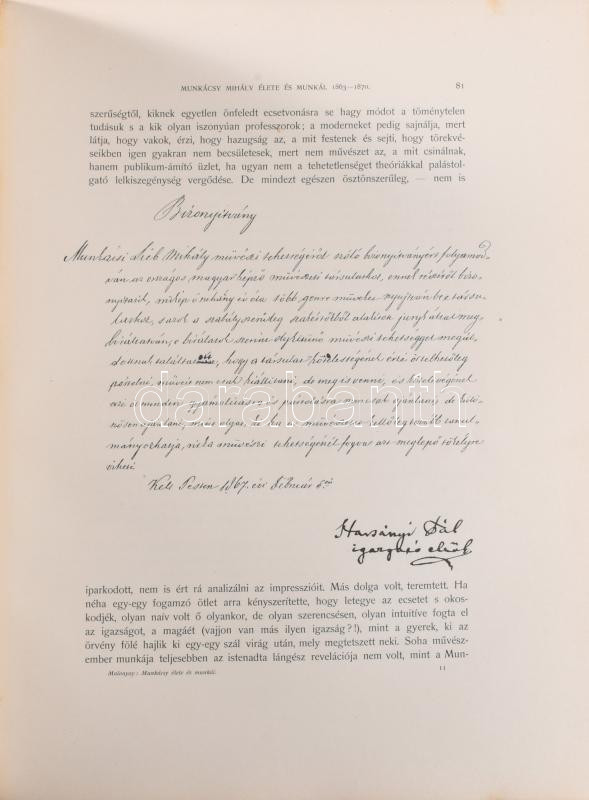 MUNKÁCSY MIHÁLY ÉLETE ÉS MUNKÁI. 1863—1870. 81
szerűségtől, kiknek egyetlen önfeledt ecsetvonásra se hagy módot a töménytelen
tudásuk s a kik olyan iszonyúan professzorok; a moderneket pedig sajnálja, mert
látja, hogy vakok, érzi, hogy hazugság az, a mit festenek és sejti, hogy törekvé-
seikben igen gyakran nem becsületesek, mert nem művészet az, a mit csinálnak,
hanem publikum-ámító üzlet, ha ugyan nem a tehetetlenséget theóriákkal palástol-
gató lelkiszegénység vergődése. De mindezt egészen ösztönszerűleg, — nem is
Bizonyitvány
Munkácsi Lieb Mihály művészi tehetségéről szóló bizonyitványért folyamod-
ván az országos magyar képző művészeti társulathoz, ennek részéről bizo-
nyittatik, mikép ő néhány év óta több genre művet nyujtván be a társu-
lathoz, s azok a szabályszerüleg
biráltatván, e birálatok szerint művészi tehetséggel megál-
dottnak találtatott, hogy a társulat
műveit nem csak kiállitani, de meg is venni, és
ezt minden gyámolitásra és pártolásra
nösen ajánlani, mint olyat, ki ha a művészetben kellőleg tovább tanul-
mányozhatja, művészi tehetségénél fogva
érheti
Kelt Pesten 1867. évi Február 6án
Harsányi Pál
igazgató elnök
darabanth
iparkodott, nem is ért rá analizálni az impresszióit. Más dolga volt, teremtett. Ha
néha egy-egy fogamzó ötlet arra kényszerítette, hogy letegye az ecsetet s okos-
kodjék, olyan naív volt ő olyankor, de olyan szerencsésen, olyan intuitíve fogta el
az igazságot, a magáét (vajjon van más ilyen igazság?!), mint a gyerek, ki az
örvény fölé hajlik ki egy-egy szál virág után, mely megtetszett neki. Soha művész-
ember munkája teljesebben az istenadta lángész revelációja nem volt, mint a Mun-
Malonyay: Munkácsy élete és munkái. 11